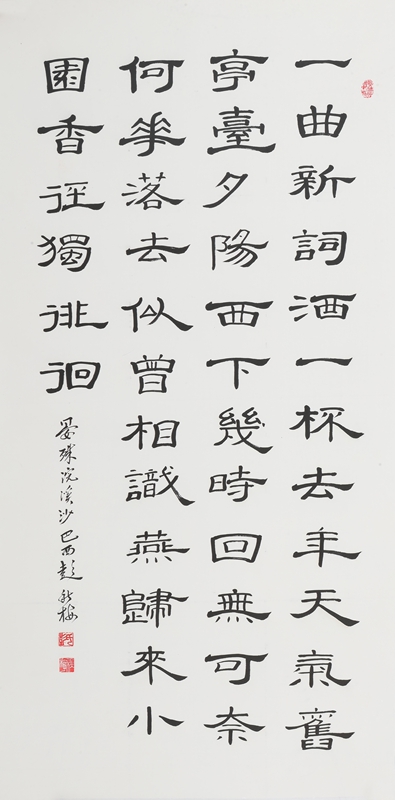 一曲新詞酒一杯去年天氣舊
亭臺夕陽西下幾時回無可奈
何華落去似曾相識燕歸來小
園香徑獨徘徊
晏殊浣溪沙巴西彭梅